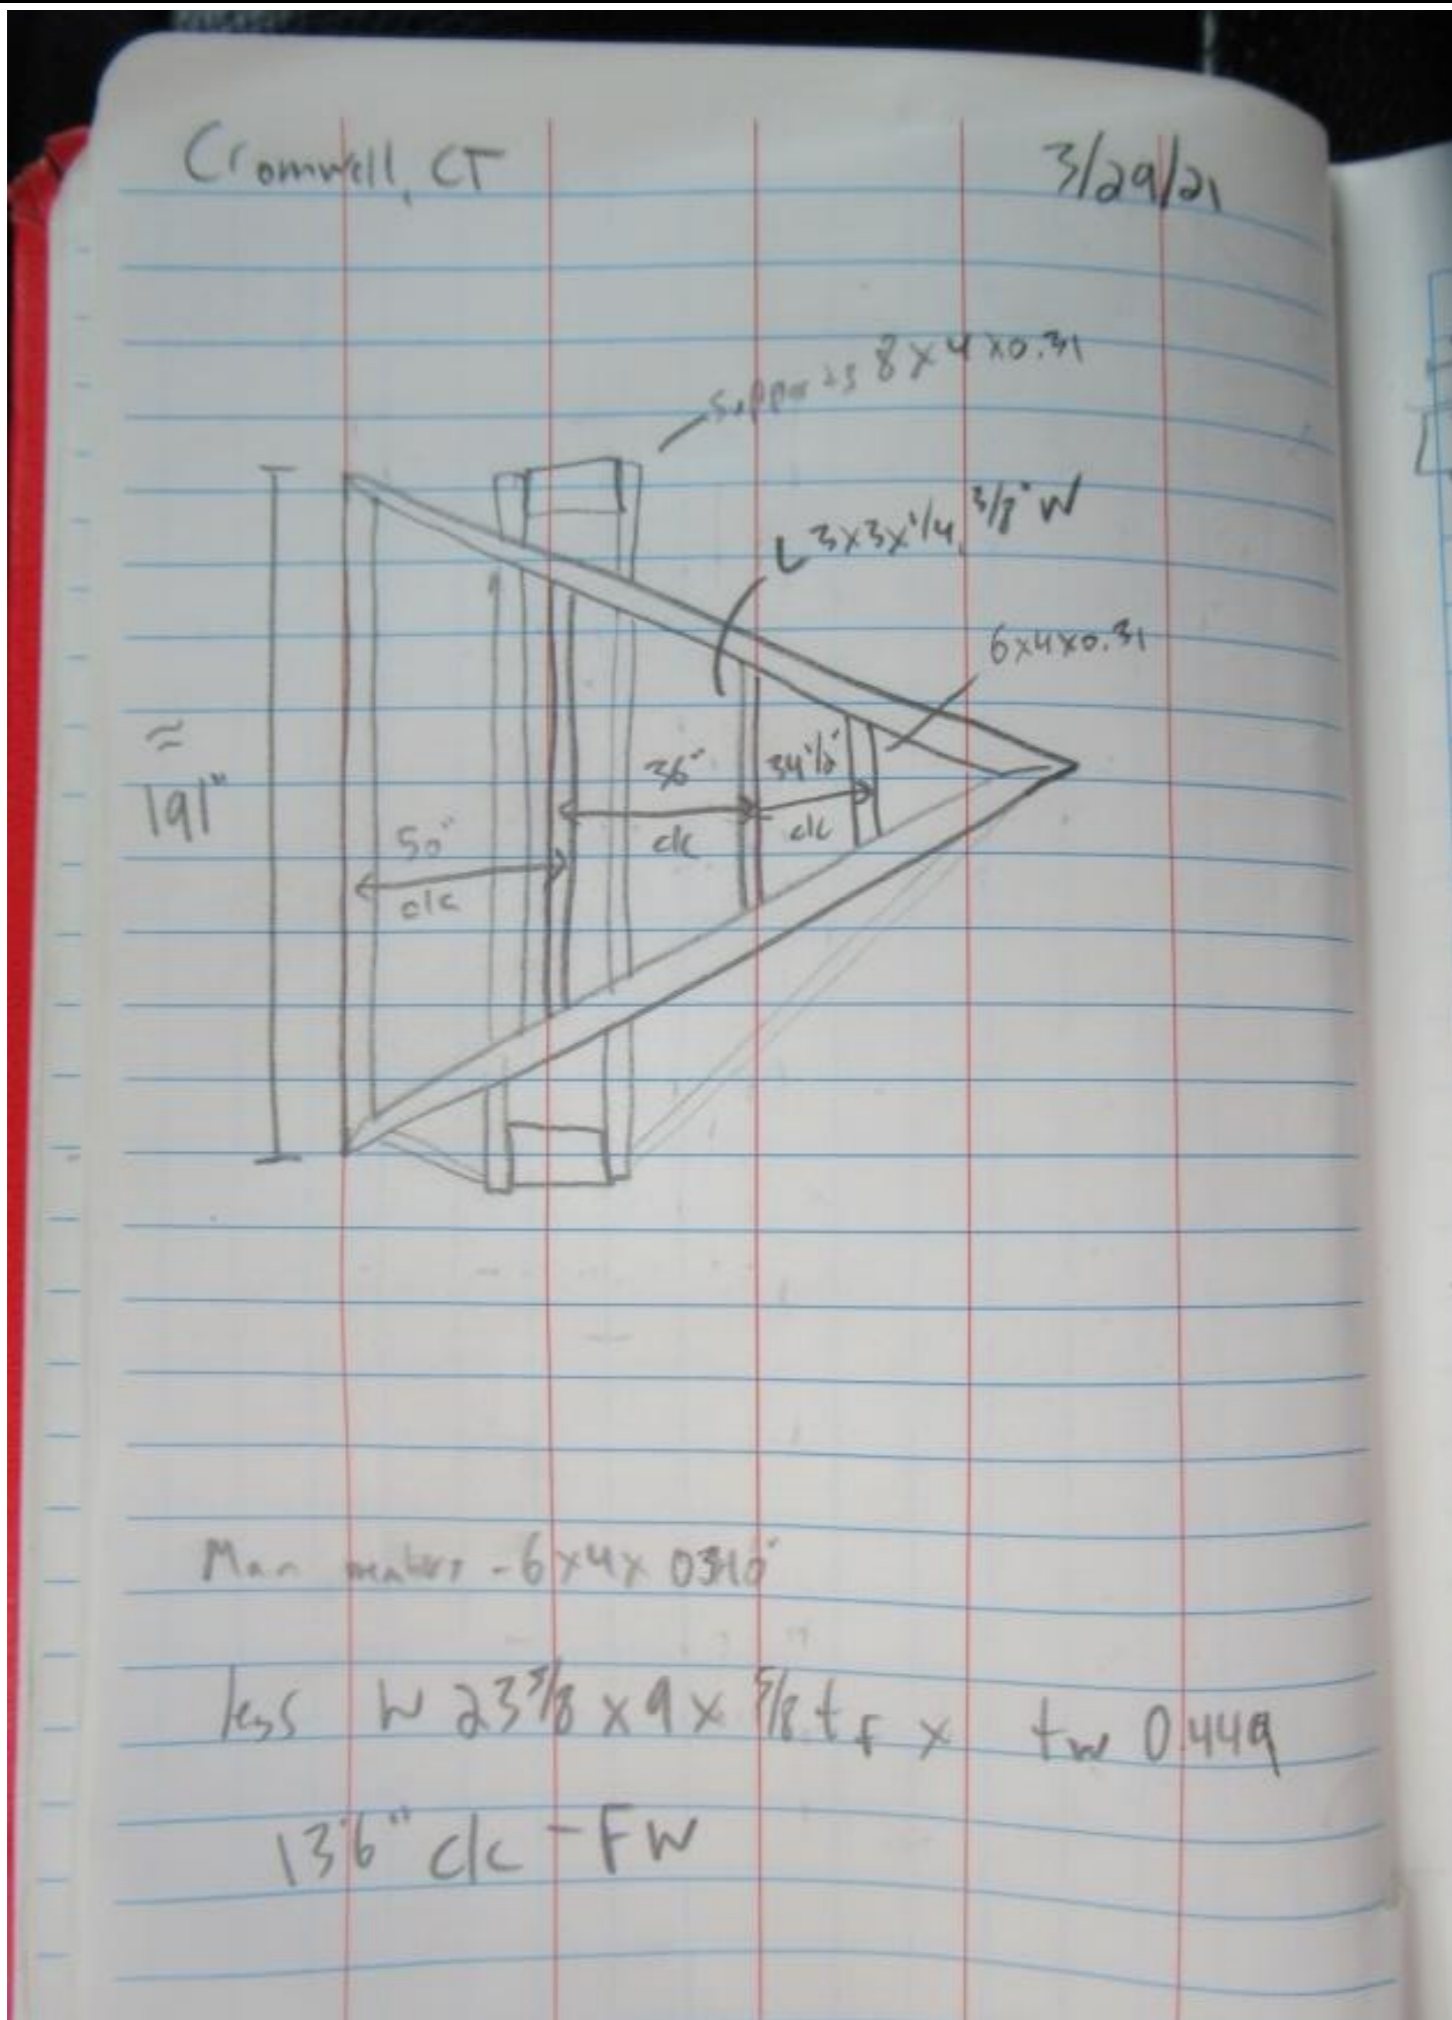 Cromwell, CT 3/29/21
supports 8x4x0.31
L 3x3x1/4, 3/8" W
6x4x0.31
≈
191"
36"
c/c
34 1/2"
c/c
50"
c/c
Man members - 6x4x 0.310"
legs W 23 5/8 x 9 x 5/8 tf x tw 0.449
13'6" c/c - FW